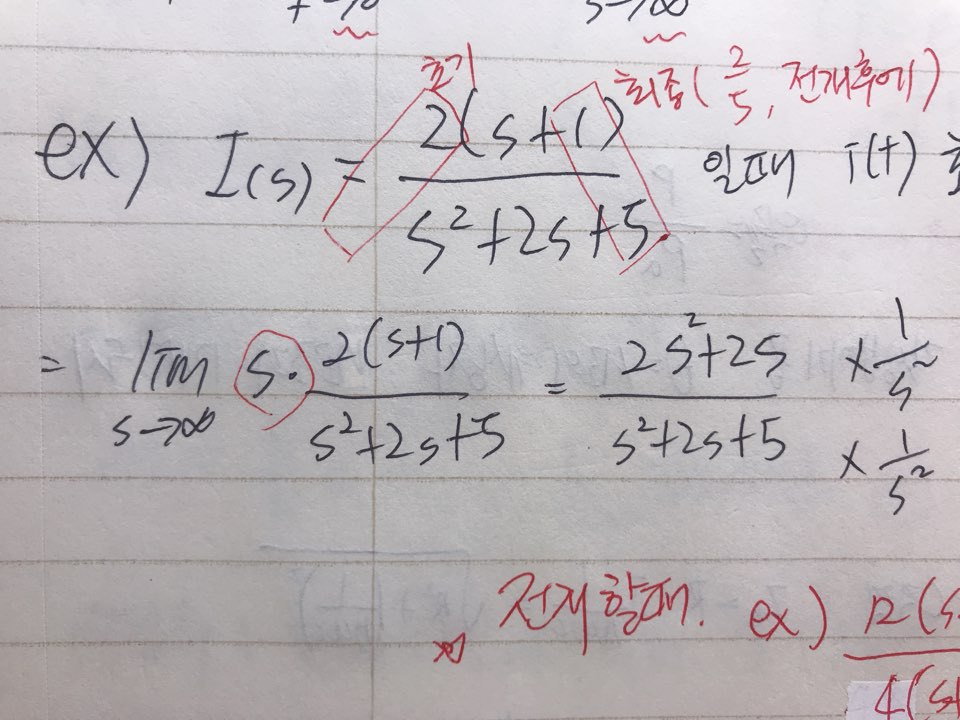 s→∞
초기
최종( 2/5, 전개후에)
ex) I(s) = 2(s+1) / s²+2s+5 일때 i(t)
= lim s→∞ s· 2(s+1) / s²+2s+5 = 2s²+2s / s²+2s+5 × 1/s² × 1/s²
전개할때. ex) 12(s / 4(s+